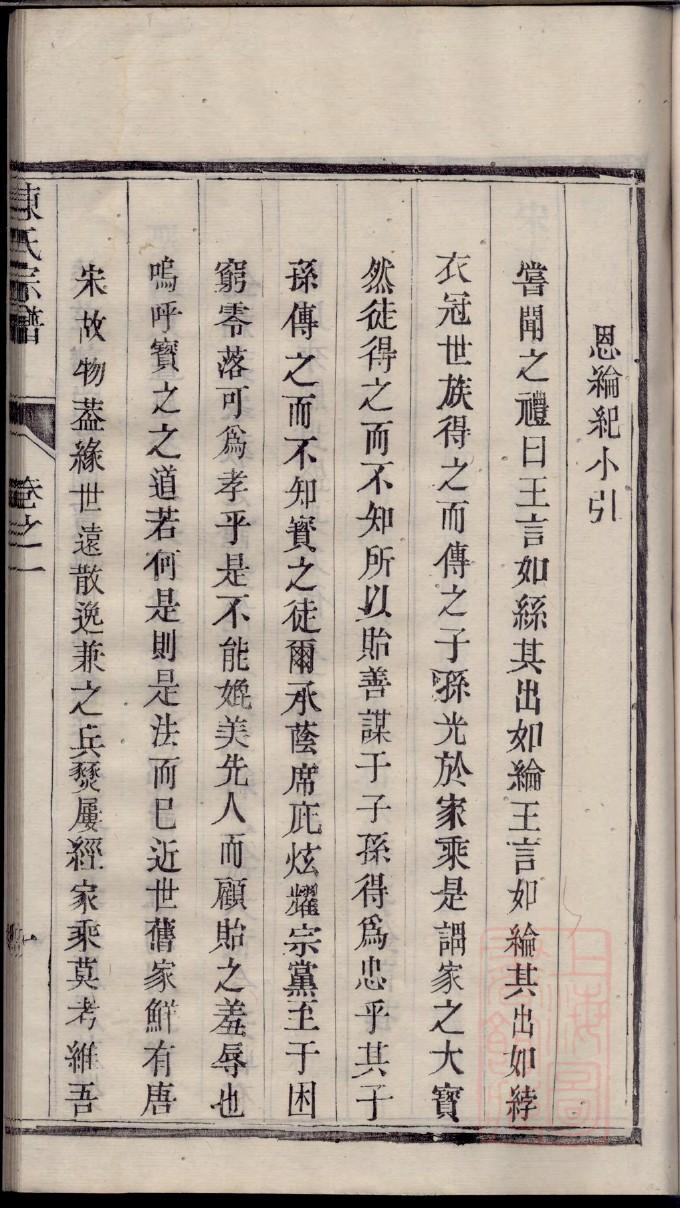 恩綸紀小引
嘗聞之禮曰王言如絲其出如綸王言如綸其出如綍
衣冠世族得之而傳之子孫光於家乘是謂家之大寶
然徒得之而不知所以貽善謀于子孫得爲忠乎其子
孫傳之而不知寶之徒爾承蔭席庇炫耀宗黨至于困
窮零落可爲孝乎是不能媲美先人而顧貽之羞辱也
嗚呼寶之之道若何是則是法而已近世舊家鮮有唐
宋故物蓋緣世遠散逸兼之兵燹屢經家乘莫考維吾
陳氏宗譜 卷之一